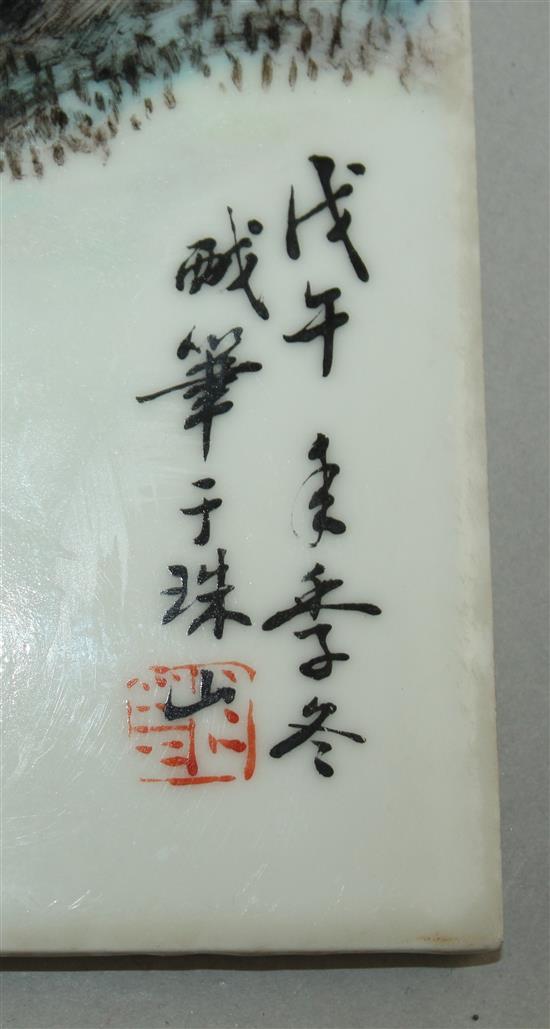 戊午年季冬
戲筆于珠山